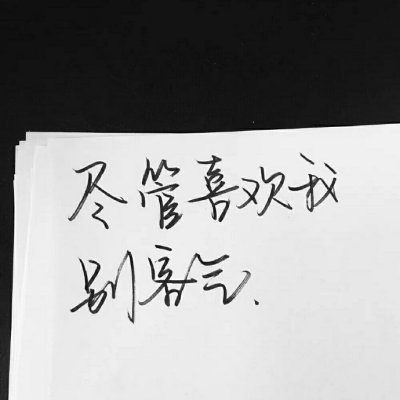 尽管喜欢我
别客气.